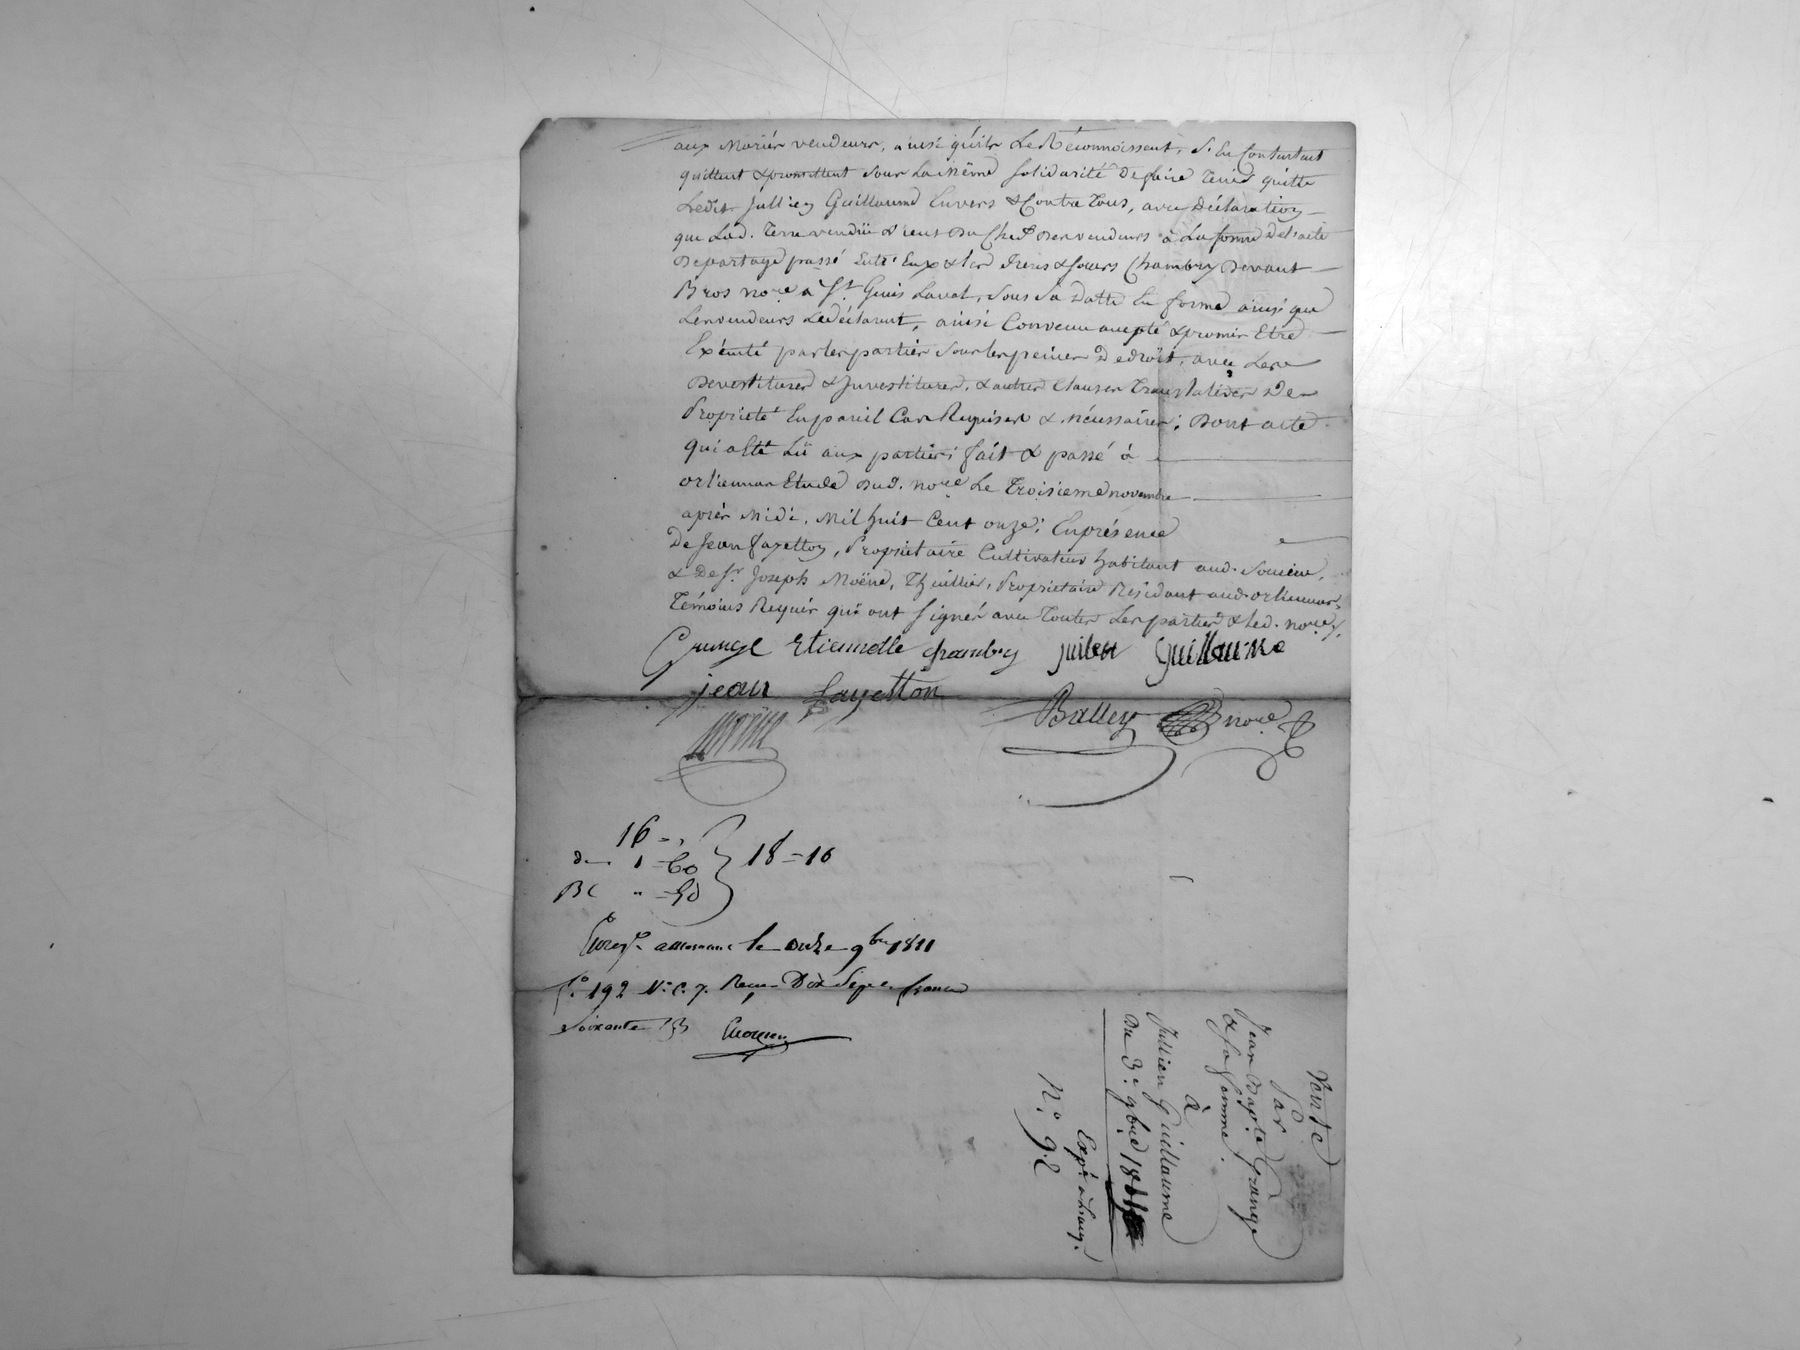 aux Mariés vendeurs, ainsi qu'ils Le Réconnoissent, S'En Contentent
quittent & promettent sous La même solidarité De faire Tenir quitte
Ledit Jullien Guillaume Envers & Contre Tous, avec Déclaration
que Lad. Terre vendüe vient Du Chef Des vendeurs à La forme De l'acte
De partage passé Entr'Eux & les frères & sœurs Chambry Devant
Bros nore à St. Genis Laval, sous sa Datte En forme ainsi que
Les vendeurs Le déclarent, ainsi Convenu accepté & promis Etre
Exécuté par les parties sous les peines De droit, avec Les
Dévestitures & Investitures, & autres Clauses Translatives De
Propriété En pareil Cas Requises & nécessaires; Dont acte
qui a été Lü aux parties; fait & passé à
orliennas Etude Dud. nore. Le Troisieme novembre
après Midi, Mil huit Cent onze; En présence
De Jean fayetton, Propriétaire Cultivateur habitant aud. Soucieu,
& De Sr. Joseph Moëne, Thuillier, Propriétaire Résidant aud. orliennas,
Témoins Requis qui ont signé avec Toutes Les parties & Led. nore.
Grange Etiennette chambry julien Guillaume
jean fayetton
Moëne Balley nore.
16 = "
d— 1 = 60 } 18 = 10
BC " = 50
Enregé. a Mornant le onze 9bre 1811
fo. 192 Vo. C. 7. Reçu Dix Sept francs
Soixante
Vente
Par
Jean Bapte. Grange
& sa femme.
à
Jullien Guillaume
Du 3e. 9bre 1811
Expé.
No. 92